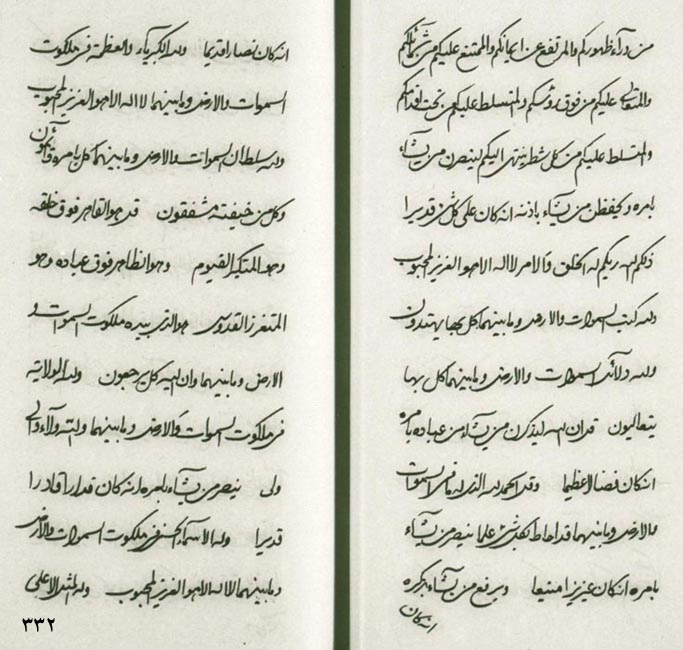 من ورآء ظهوركم والمرتفع عن ايمانكم والممتنع عليكم من شمائلكم
والمتعالى عليكم من فوق رؤسكم والمتسلط عليكم من تحت اقدامكم
والمتسلط عليكم من كل شطر ينتهى اليكم لينصرن من يشآء
بامره وليحفظن من يشآء باذنه انه كان على كل شئ قديرا
ذلكم الله ربكم له الخلق والامر لا اله الا هو العزيز المحبوب
ولله كتب السموات والارض وما بينهما كل بها يهتدون
ولله دلائل السموات والارض وما بينهما كل بها
يتعاليون قل ان الله ليذكرن من يشآء من عباده بامره
انه كان فضالا عظيما وقل الحمد لله الذى له ما فى السموات
والارض وما بينهما قد احاط بكل شئ علما ينصر من يشآء
بامره انه كان عزيزا منيعا ويرفع من يشآء بذكره
انه كان
انه كان نصارا قديما ولله الكبريآء والعظمة فى ملكوت
السموات والارض وما بينهما لا اله الا هو العزيز المحبوب
ولله سلطان السموات والارض وما بينهما كل بامره قائمون
وكل من خيفته مشفقون قل هو القاهر فوق خلقه
وهو المتكبر القيوم وهو الظاهر فوق عباده وهو
المتعزز القدوس هو الذى بيده ملكوت السموات و
الارض وما بينهما وان اليه كل يرجعون ولله الولاية
فى ملكوت السموات والارض وما بينهما والله ولآء والى
ولى ينصر من يشآء بامره انه كان قدارا قادرا
قديرا ولله الاسمآء الحسنى فى ملكوت السموات والارض
وما بينهما لا اله الا هو العزيز المحبوب وله المثل الاعلى
٣٣٢